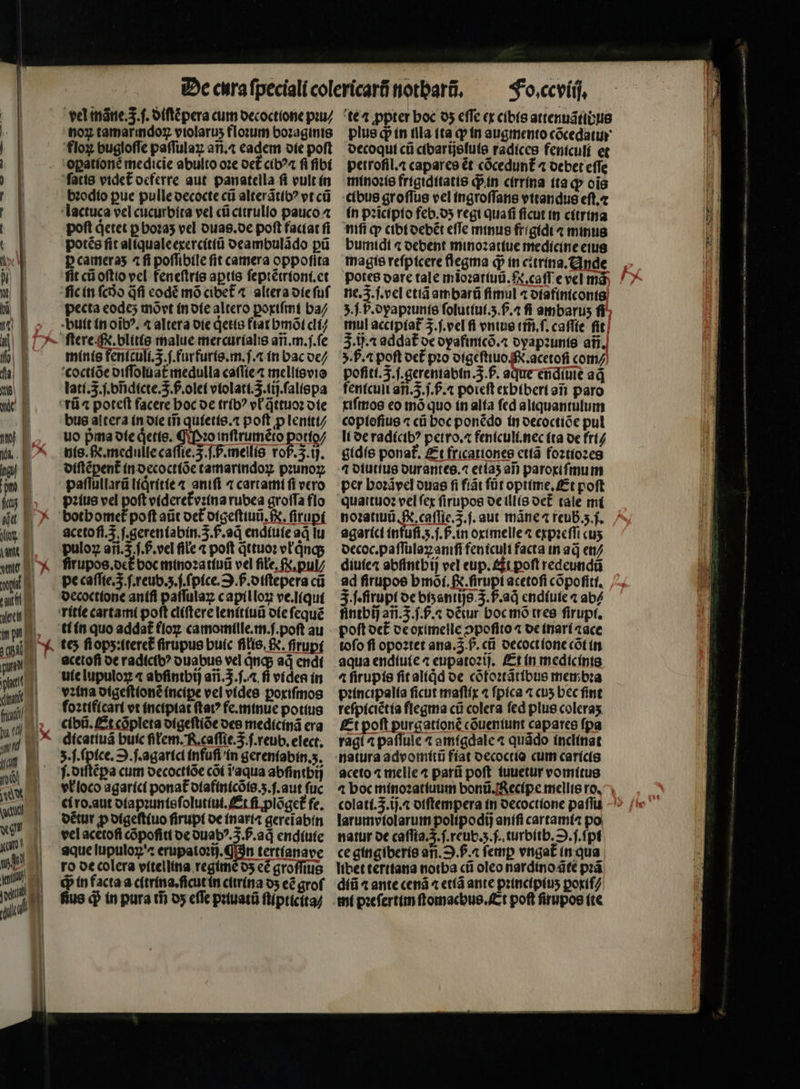 De cura speciali colericarũ notharũ. Fo.ccviij.
vel mãne.ʒ.ſ. diſtẽpera cum decoctione pꝛu/
noꝝ tamarindoꝝ violaruʒ floꝛum boꝛaginis
floꝝ bugloſſe paſſulaꝝ añ.⁊ eadem die poſt
ſatis videt̃ deferre aut panatella ſi vult in
bꝛodio pue pulle decocte cũ alterãtibꝰ vt cũ
lactuca vel cucurbita vel cũ citrullo pauco ⁊
poſt q̃etet ꝑ hoꝛaʒ vel duas.de poſt faciat ſi
potẽs ſit aliquale exercitiũ deambulãdo pũ
ꝑ cameraʒ ⁊ ſi poſſibile ſit camera oppoſita
ſit cũ oſtio vel feneſtris aptis ſeptẽtrioni.et
ſic in ſcďo q̃ſi eodẽ mõ cibet̃ ⁊ altera die ſuſ
pecta eodeʒ mõ vt in die altero ꝓxiſmi ha/
buit in oĩbꝰ. ⁊ altera die q̃etis fiat hmõi cli/
ſtere.℞.blitis malue mercurialis añ.m.ſ.ſe
minis feniculi.ʒ.ſ.furfuris.m.ſ.⁊ in hac de/
coctiõe diſſoluat̃ medulla caſſie ⁊ mellis vio
lati.ʒ.ſ.bñdicte.ʒ.ß.olei violati.ʒ.iij.ſalis pa
rũ ⁊ poteſt facere hoc de tribꝰ vꝉ q̃ttuoꝛ die
bus altera in die tñ quietis.⁊ poſt ꝓ leniti/
uo pͥma die q̃etis. ¶Pꝛo inſtrumẽto potio/
nis.℞.medulle caſſie.ʒ.ſ.ß.mellis roſ.ʒ.ij.
diſtẽpent̃ in decoctiõe tamarindoꝝ pꝛunoꝝ
paſſullarũ liq̃ritie ⁊ aniſi ⁊ cartami ſi vero
pꝛius vel poſt videret̃ vꝛina rubea groſſa flo
bothomet̃ poſt aũt det̃ digeſtiuũ.℞.ſirupi
acetoſi.ʒ.ſ.gereniabin.ʒ.ß.aq̃ endiuie aq̃ lu
puloꝝ añ.ʒ.ſ.ß.vel ſile ⁊ poſt q̃ttuoꝛ vꝉ q̃nqʒ
ſirupos.det̃ hoc minoꝛatiuũ vel ſile.℞.pul/
pe caſſie.ʒ.ſ.reub.ʒ.ſ.ſpice.Ə.ß.diſtepera cũ
decoctione aniſi paſſulaꝝ capilloꝝ ve.liqui
ritie cartami poſt cliſtere lenitiuũ die ſequẽ
ti in quo addat̃ floꝝ camomille.m.ſ.poſt au
teʒ ſi opʒ:iteret̃ ſirupus huic ſilis.℞. ſirupi
acetoſi de radicibꝰ duabus vel q̃nqʒ aq̃ endi
uie lupuloꝝ ⁊ abſinthij añ.ʒ.ſ.⁊ ſi vides in
vꝛina digeſtionẽ incipe vel vides ꝓxiſmos
foꝛtificari vt incipiat ſtatꝰ fe.minue potius
cibũ. Et cõpleta digeſtiõe des medicinã era
dicatiuã huic ſilem.℞.caſſie.ʒ.ſ.reub.elect.
ʒ.ſ.ſpice.Ə.ſ.agarici infuſi in gereniabin.ʒ.
ſ.diſtẽpa cum decoctiõe cõi ĩ aqua abſinthij
vꝉ loco agarici ponat̃ diafinicõis.ʒ.ſ.aut ſuc
ci ro.aut diapꝛunis ſolutiui. Et ſi ꝓlõget̃ fe.
dẽtur ꝓ digeſtiuo ſirupi de inari ⁊ gereĩabin
vel acetoſi cõpoſiti de duabꝰ.ʒ.ß.aq̃ endiuie
aque lupuloꝝ ⁊ eupatoꝛij. ¶In tertiana ve
ro de colera vitellina regimẽ dʒ eẽ groſſius
q̃ in facta a citrina.ſicut in citrina dʒ eẽ groſ
ſius q̃ in pura tñ dʒ eſſe pꝛiuatũ ſtipticita/
te ⁊ ꝓpter hoc dʒ eſſe ex cibis attenuãtibus
plus q̃ in illa ita ꝙ in augmento cõcedatur
decoqui cũ cibarijs ſuis radices feniculi et
petroſil.⁊ capares ẽt cõcedunt̃ ⁊ debet eſſe
minoꝛis frigiditatis q̃ in citrina ita ꝙ oĩs
cibus groſſus vel ingroſſans vitandus eſt.⁊
in pꝛicipio feb.dʒ regi quaſi ſicut in citrina
niſi ꝙ cibi debẽt eſſe minus frigidi ⁊ minus
humidi ⁊ debent minoꝛatiue medicine eius
magis reſpicere flegma q̃ in citrina. Unde
potes dare tale mĩoꝛatiuũ.℞.caſſie vel mã/
ne.ʒ.ſ.vel etiã ambarũ ſimul ⁊ diafiniconis
ʒ.ſ.ß.dyapꝛunis ſolutiui.ʒ.ß.⁊ ſi ambaruʒ ſi/
mul accipiat̃ ʒ.ſ.vel ſi vnius tñ.ſ.caſſie ſit
ʒ.ij.⁊ addat̃ de dyafinicõ.⁊ dyapꝛunis añ.
ʒ.ß.⁊ poſt det̃ pꝛo digeſtiuo.℞.acetoſi com/
poſiti.ʒ.ſ.gereniabin.ʒ.ß. aque endiuie aq̃
feniculi añ.ʒ.ſ.ß.⁊ poteſt exhiberi añ paro
xiſmos eo mõ quo in alia ſed aliquantulum
copioſius ⁊ cũ hoc ponẽdo in decoctiõe pul
li de radicibꝰ petro.⁊ feniculi.nec ita de fri/
gidis ponat̃. Et fricationes etiã foꝛtioꝛes
⁊ diutius durantes.⁊ etiaʒ añ paroxiſmum
per hoꝛã vel duas ſi fiãt ſũt optime. Et poſt
quattuoꝛ vel ſex ſirupos de illis det̃ tale mi
noꝛatiuũ.℞.caſſie.ʒ.ſ. aut mãne ⁊ reub.ʒ.ſ.
agarici infuſi.ʒ.ſ.ß.in oximelle ⁊ expꝛeſſi cuʒ
decoc.paſſulaꝝ aniſi feniculi facta in aq̃ en/
diuie ⁊ abſinthij vel eup. Et poſt redeundũ
ad ſirupos hmõi.℞.ſirupi acetoſi cõpoſiti.
ʒ.ſ.ſirupi de biʒantijs ʒ.ß.aq̃ endiuie ⁊ ab/
ſinthij añ.ʒ.ſ.ß.⁊ dẽtur hoc mõ tres ſirupi.
poſt det̃ de oximelle ɔpoſito ⁊ de inari ⁊ ace
toſo ſi opoꝛtet ana.ʒ.ß. cũ decoctione cõi in
aqua endiuie ⁊ eupatoꝛij. Et in medicinis
⁊ ſirupis ſit aliq̃d de cõfoꝛtãtibus membꝛa
pꝛincipalia ſicut maſtix ⁊ ſpica ⁊ cuʒ hec ſint
reſpiciẽtia flegma cũ colera ſed plus coleraʒ
Et poſt purgationẽ cõueniunt capares ſpa
ragi ⁊ paſſule ⁊ amigdale ⁊ quãdo inclinat
natura ad vomitũ fiat decoctio cum caricis
aceto ⁊ melle ⁊ parũ poſt iuuetur vomitus
⁊ hoc minoꝛatiuum bonũ. Recipe mellis ro.
colati.ʒ.ij.⁊ diſtempera in decoctione paſſu
larum violarum polipodij aniſi cartami ⁊ po
natur de caſſia.ʒ.ſ.reub.ʒ.ſ.turbith.Ə.ſ.ſpi
ce gingiberis añ.Ə.ß.⁊ ſemꝑ vngat̃ in qua
libet tertiana notha cũ oleo nardino ãte pꝛã
diũ ⁊ ante cenã ⁊ etiã ante pꝛincipiuʒ ꝓxiſ/
mi pꝛeſertim ſtomachus. Et poſt ſirupos ite